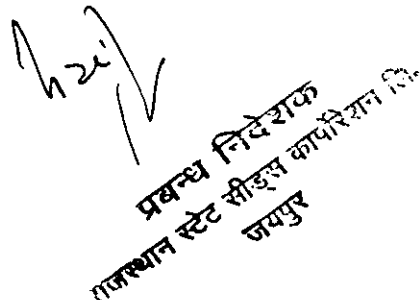 प्रबन्ध निदेशक
राजस्थान स्टेट सीड्स कार्पोरेशन लि.
जयपुर